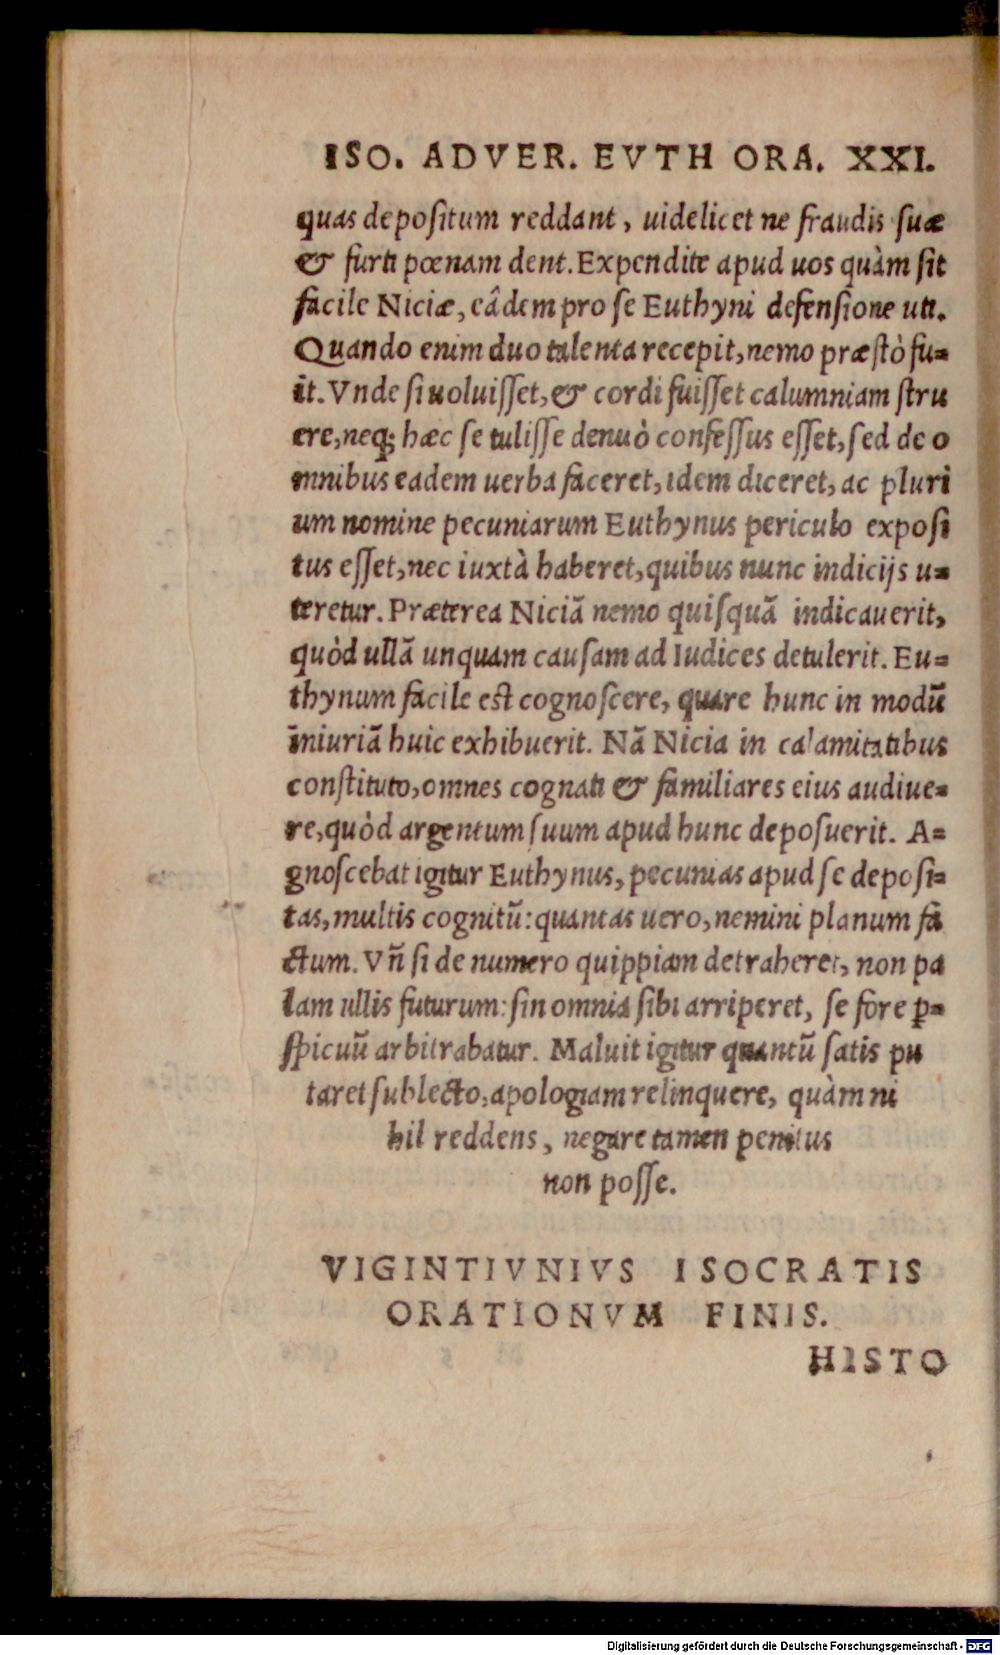 ISO. ADVER. EVTH ORA. XXI.
quas depositum reddant, uidelicet ne fraudis suæ
& furti pœnam dent. Expendite apud uos quàm sit
facile Niciæ, eâdem pro se Euthyni defensione uti.
Quando enim duo talenta recepit, nemo præstò fu=
it. Vnde si uoluisset, & cordi fuisset calumniam stru
ere, neq; hæc se tulisse denuò confessus esset, sed de o
mnibus eadem uerba faceret, idem diceret, ac pluri
um nomine pecuniarum Euthynus periculo exposi
tus esset, nec iuxtà haberet, quibus nunc indicijs u=
teretur. Præterea Niciā nemo quisquā indicauerit,
quòd ullā unquam causam ad Iudices detulerit. Eu=
thynum facile est cognoscere, quare hunc in modū
iniuriā huic exhibuerit. Nā Nicia in calamitatibus
constituto, omnes cognati & familiares eius audiue=
re, quòd argentum suum apud hunc deposuerit. A=
gnoscebat igitur Euthynus, pecunias apud se deposi=
tas, multis cognitū: quantas uero, nemini planum fa
ctum. Vn̄ si de numero quippiam detraheret, non pa
lam ullis futurum: sin omnia sibi arriperet, se fore ꝑ=
spicuū arbitrabatur. Maluit igitur quantū satis pu
taret sublecto, apologiam relinquere, quàm ni
hil reddens, negare tamen penitus
non posse.
VIGINTIVNIVS ISOCRATIS
ORATIONVM FINIS.
HISTO
Digitalisierung gefördert durch die Deutsche Forschungsgemeinschaft - DFG